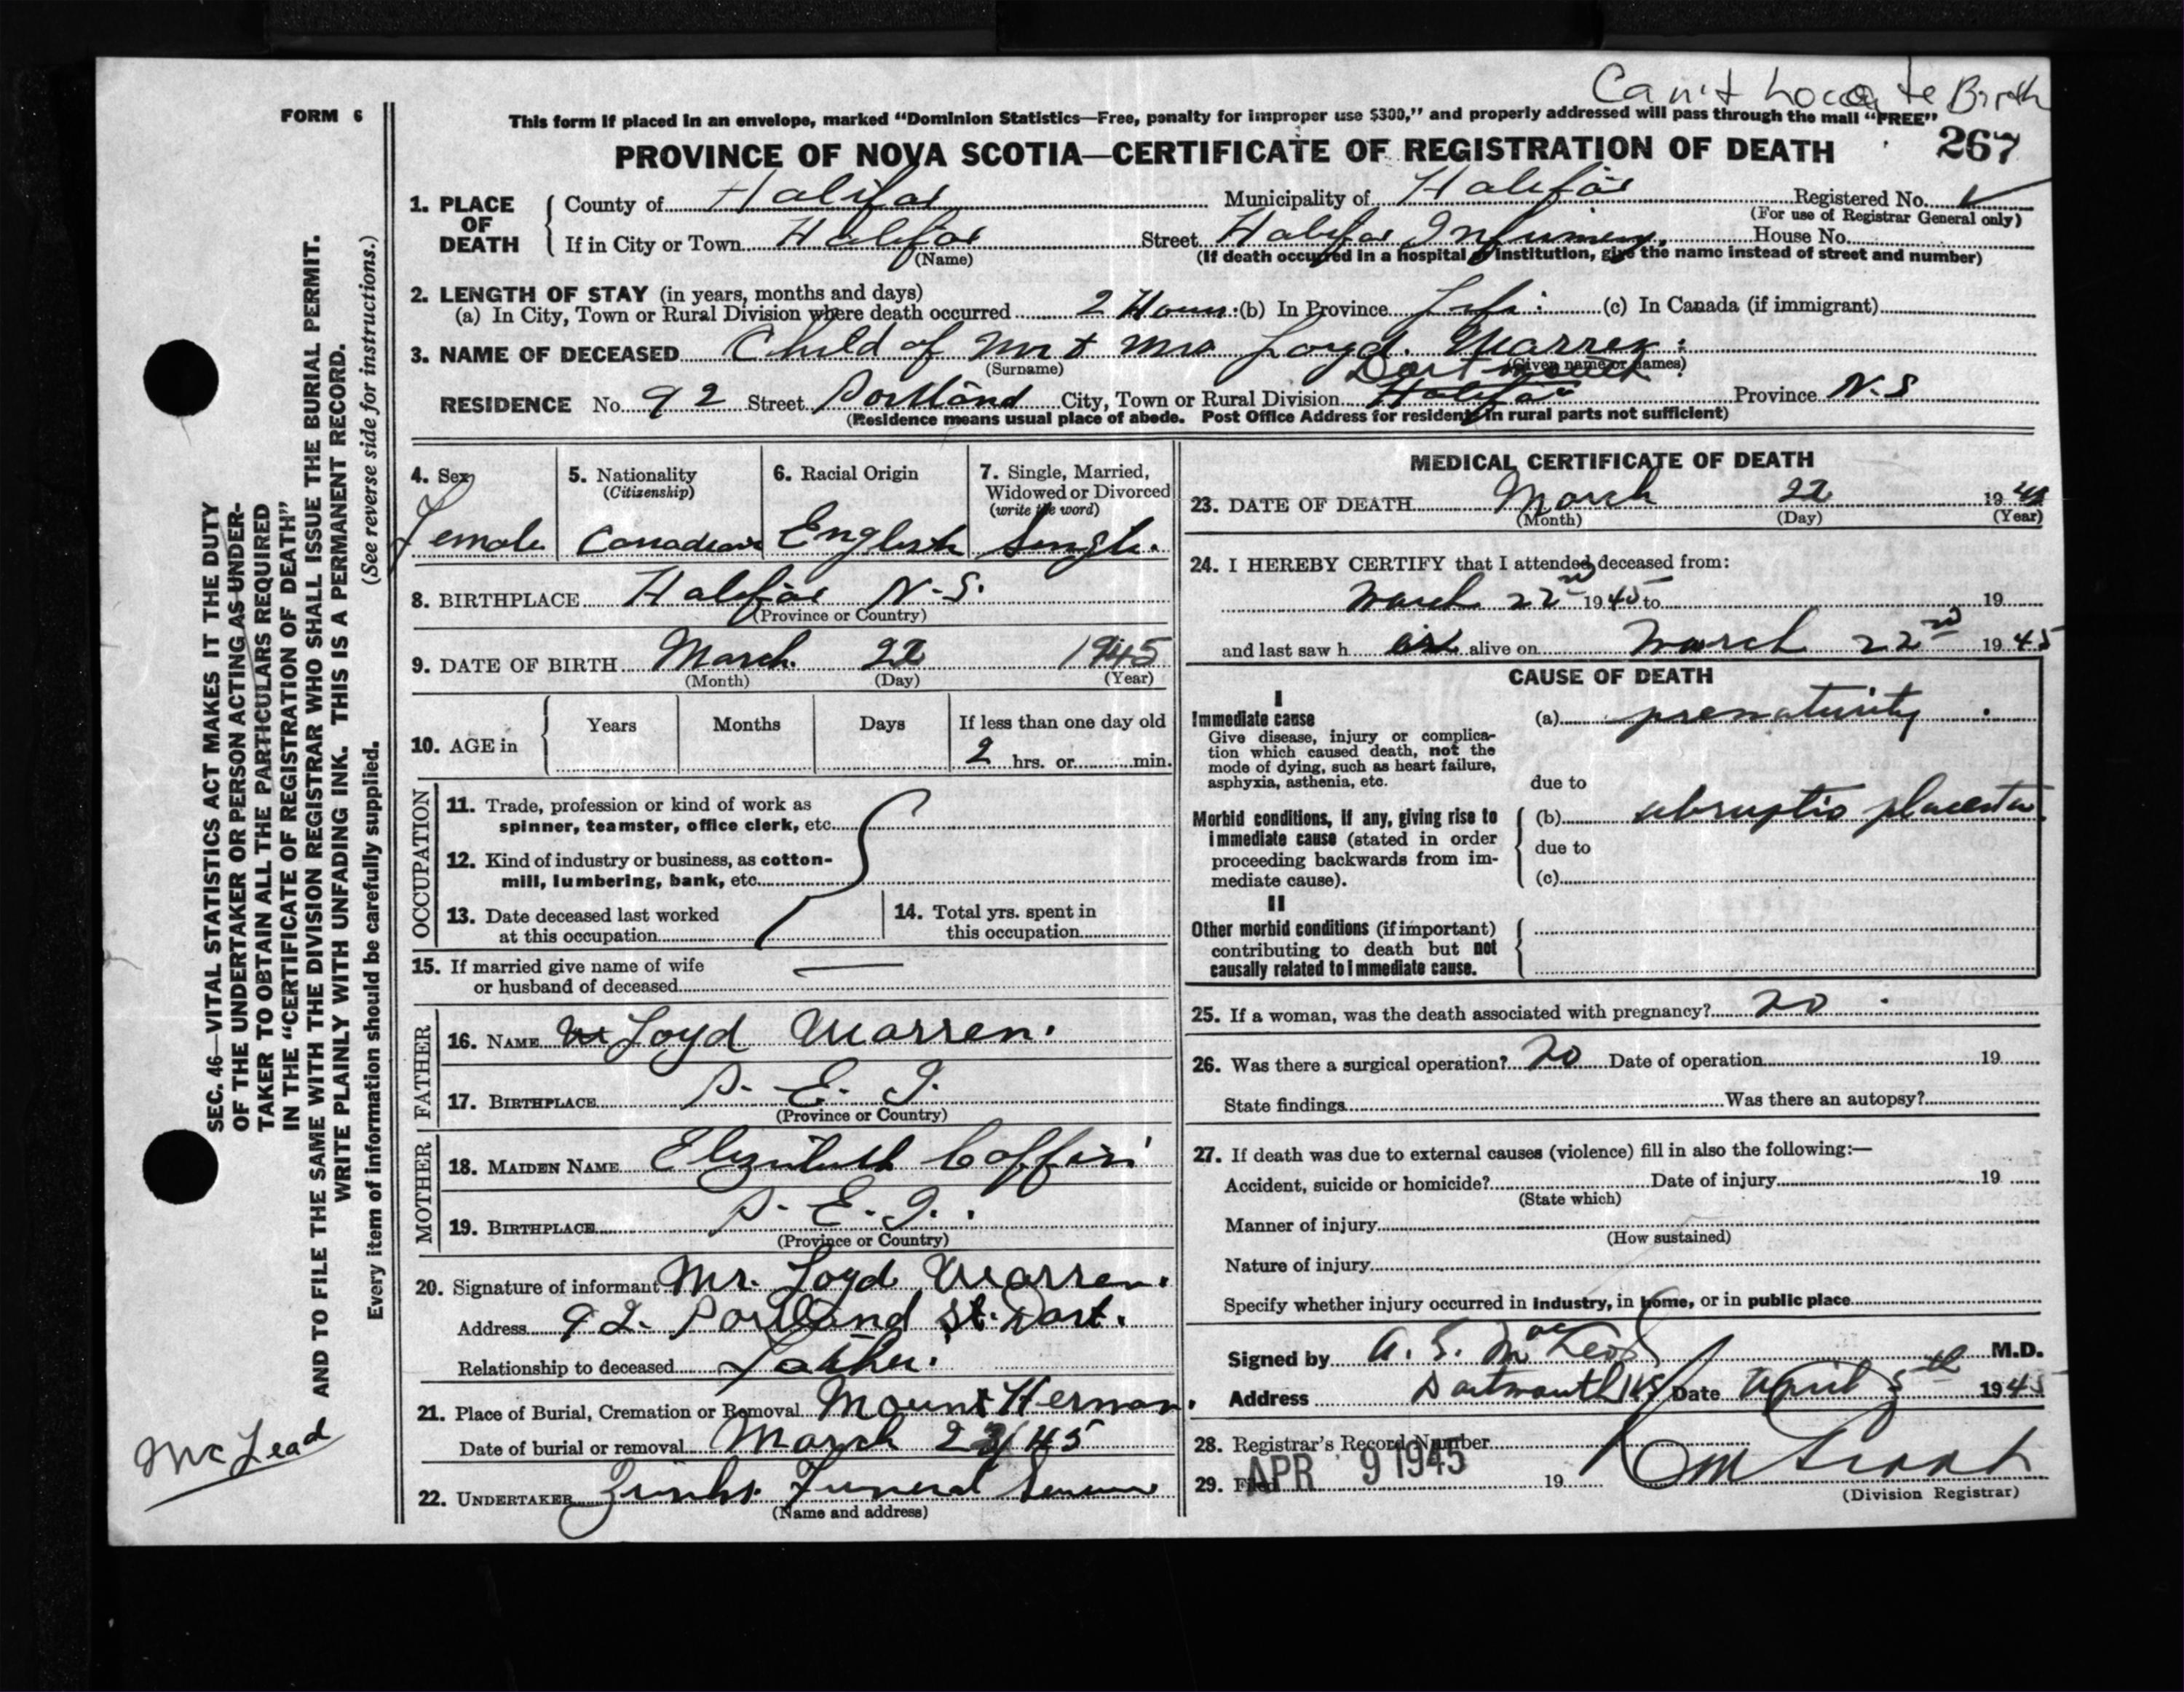 Can't Locate Birth
FORM 6
This form if placed in an envelope, marked "Dominion Statistics—Free, penalty for improper use $300," and properly addressed will pass through the mail "FREE"
PROVINCE OF NOVA SCOTIA—CERTIFICATE OF REGISTRATION OF DEATH 267
1. PLACE OF DEATH
County of Halifax Municipality of Halifax Registered No.
(For use of Registrar General only)
If in City or Town Halifax Street Halifax Infirmary House No.
(Name) (If death occurred in a hospital or institution, give the name instead of street and number)
2. LENGTH OF STAY (in years, months and days)
(a) In City, Town or Rural Division where death occurred 2 Hours (b) In Province Life (c) In Canada (if immigrant)
3. NAME OF DECEASED Child of Mr + Mrs Loyd Warren
(Surname) (Given name or names)
Dartmouth
RESIDENCE No. 92 Street Portland City, Town or Rural Division Halifax Province N.S
(Residence means usual place of abode. Post Office Address for residents in rural parts not sufficient)
4. Sex
Female
5. Nationality
(Citizenship)
Canadian
6. Racial Origin
English
7. Single, Married,
Widowed or Divorced
(write the word)
Single.
8. BIRTHPLACE Halifax N.S.
(Province or Country)
9. DATE OF BIRTH March 22 1945
(Month) (Day) (Year)
10. AGE in
Years Months Days If less than one day old
2 hrs. or min.
OCCUPATION
11. Trade, profession or kind of work as
spinner, teamster, office clerk, etc.
12. Kind of industry or business, as cotton-
mill, lumbering, bank, etc.
13. Date deceased last worked
at this occupation
14. Total yrs. spent in
this occupation
15. If married give name of wife
or husband of deceased
FATHER
16. NAME Loyd Warren.
17. BIRTHPLACE P. E. I.
(Province or Country)
MOTHER
18. MAIDEN NAME Elizabeth Coffin
19. BIRTHPLACE P. E. I.
(Province or Country)
20. Signature of informant Mr. Loyd Warren.
Address 92 Portland St. Dart.
Relationship to deceased Father.
21. Place of Burial, Cremation or Removal Mount Herman.
Date of burial or removal March 23/45
22. UNDERTAKER Zinks Funeral Service
(Name and address)
MEDICAL CERTIFICATE OF DEATH
23. DATE OF DEATH March 22 19
(Month) (Day) (Year)
24. I HEREBY CERTIFY that I attended deceased from:
March 22nd 1945 to 19
and last saw h er alive on March 22nd 1945
CAUSE OF DEATH
I
Immediate cause
Give disease, injury or complica-
tion which caused death, not the
mode of dying, such as heart failure,
asphyxia, asthenia, etc.
(a) prematurity
due to
Morbid conditions, if any, giving rise to
immediate cause (stated in order
proceeding backwards from im-
mediate cause).
(b) abruptio placenta
due to
(c)
II
Other morbid conditions (if important)
contributing to death but not
causally related to immediate cause.
25. If a woman, was the death associated with pregnancy? no
26. Was there a surgical operation? no Date of operation 19
State findings Was there an autopsy?
27. If death was due to external causes (violence) fill in also the following:—
Accident, suicide or homicide? Date of injury 19
(State which)
Manner of injury
(How sustained)
Nature of injury
Specify whether injury occurred in industry, in home, or in public place
Signed by A. S. MacLeod M.D.
Address Dartmouth NS Date April 5th 1945
28. Registrar's Record Number
29. Filed APR 9 1945 19
(Division Registrar)
SEC. 46—VITAL STATISTICS ACT MAKES IT THE DUTY
OF THE UNDERTAKER OR PERSON ACTING AS UNDER-
TAKER TO OBTAIN ALL THE PARTICULARS REQUIRED
IN THE "CERTIFICATE OF REGISTRATION OF DEATH"
AND TO FILE THE SAME WITH THE DIVISION REGISTRAR WHO SHALL ISSUE THE BURIAL PERMIT.
WRITE PLAINLY WITH UNFADING INK. THIS IS A PERMANENT RECORD.
Every item of information should be carefully supplied. (See reverse side for instructions.)
McLead